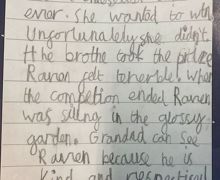 error. She wanted to win
Unfortunately she didn't.
the brothe took the
Raven felt torerible. when
the competion ended Raven
was siting in the glossy
garden. Grandad can see
Raven because he is
kind and respectful